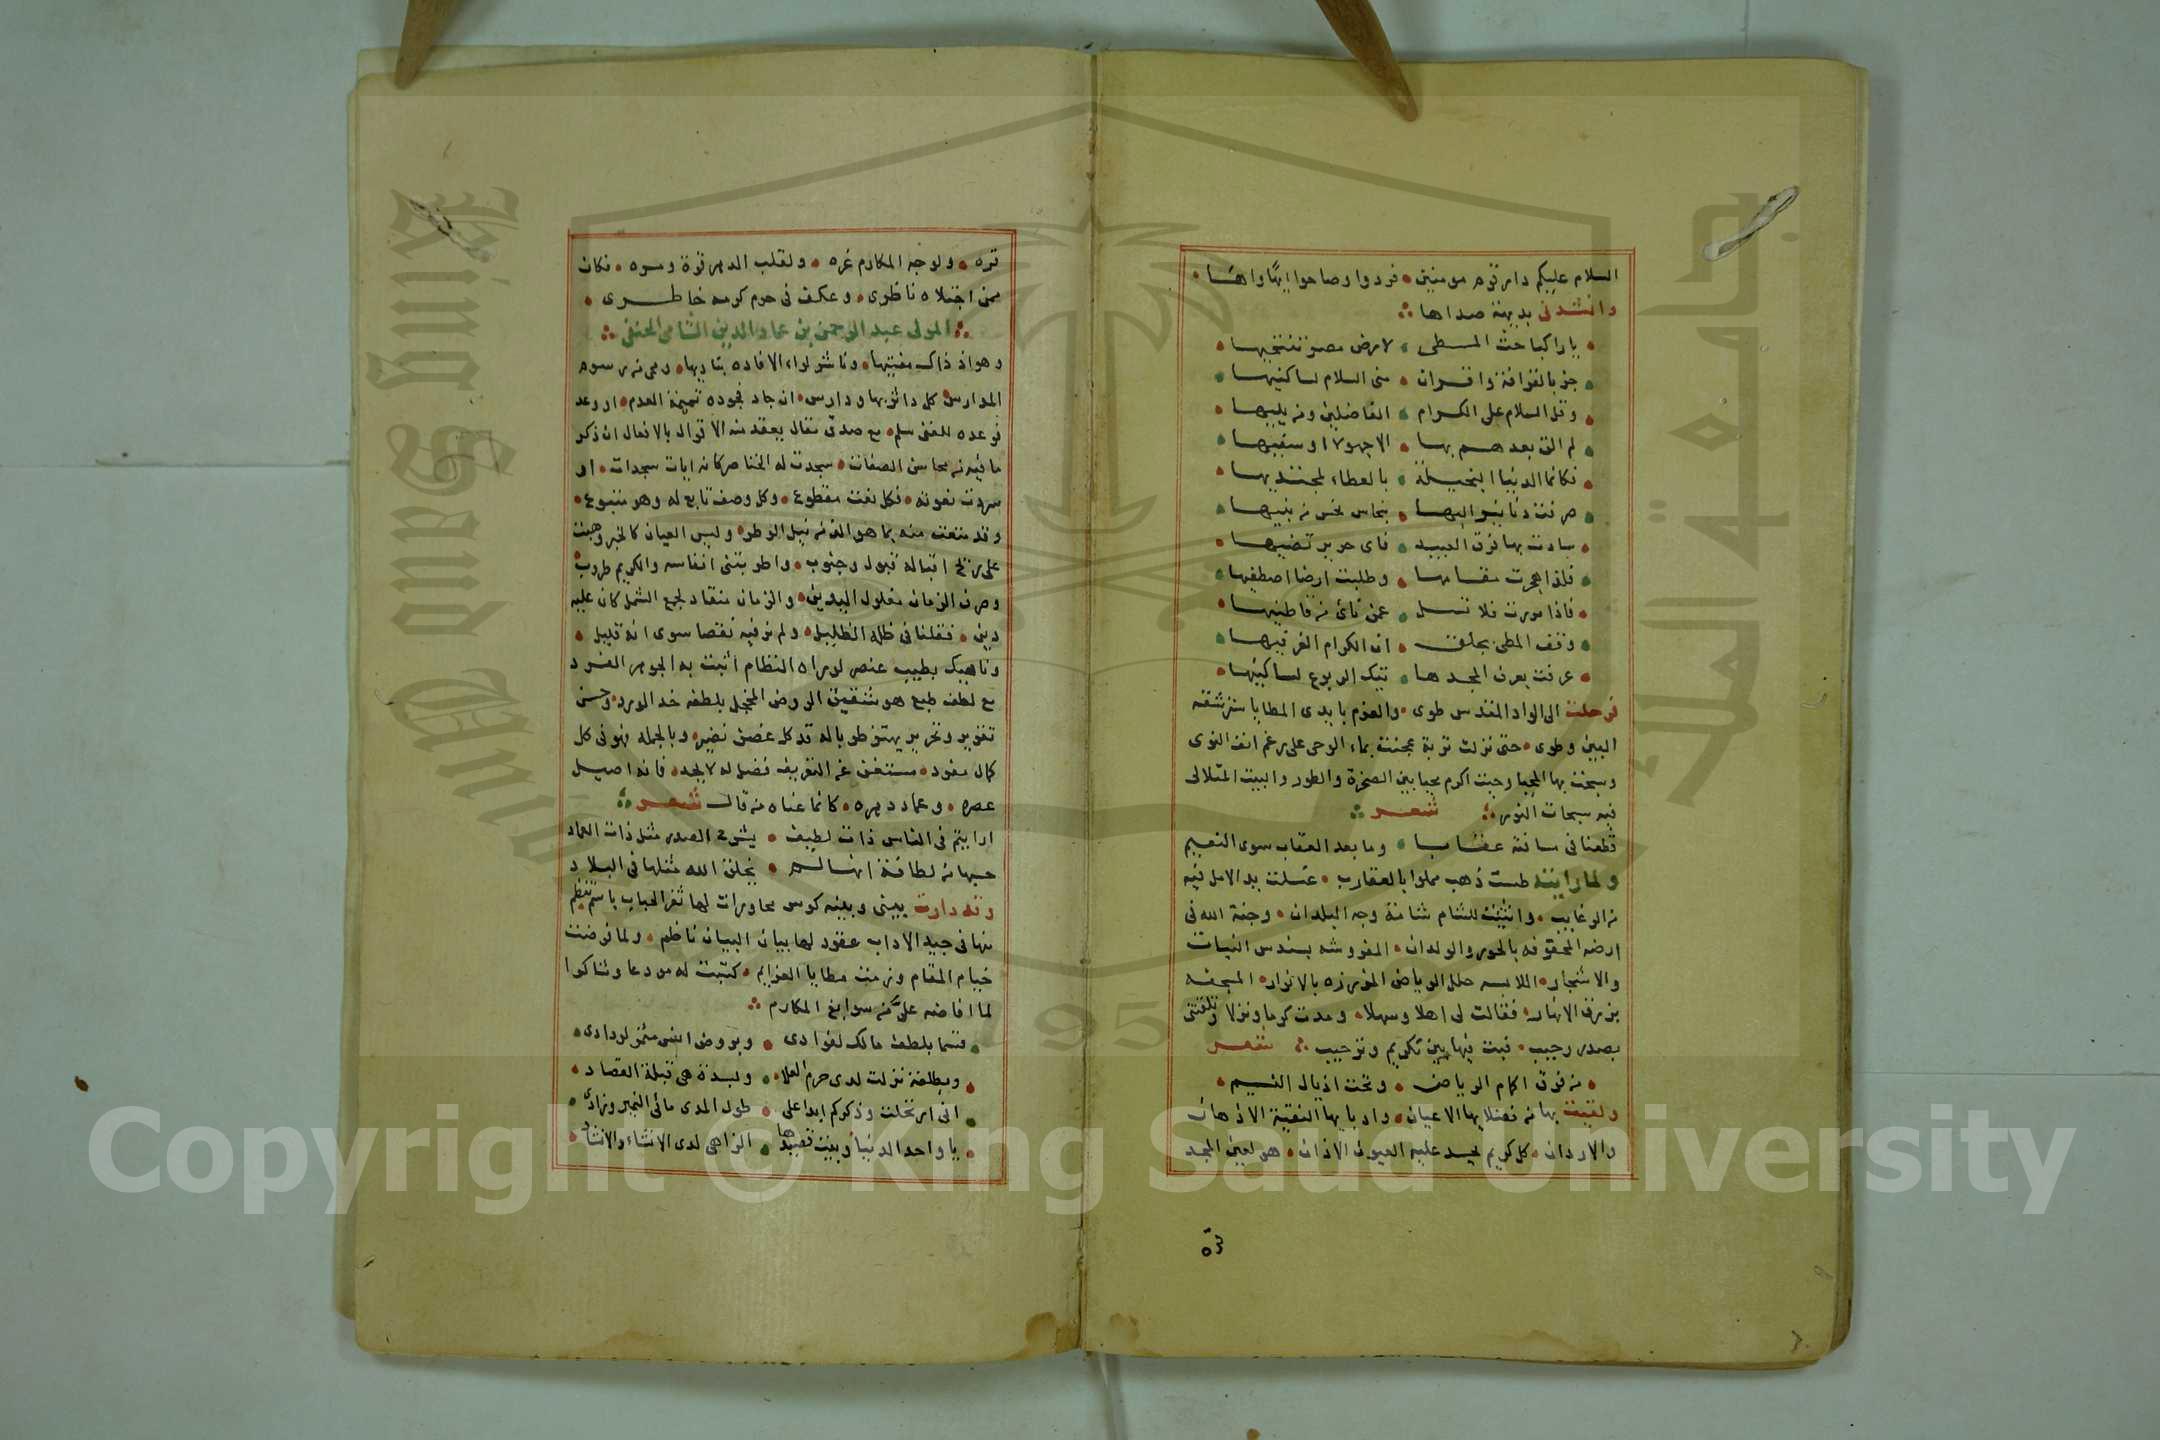 السلام عليكم دار قوم مومنين • فردوا وصاحوا ايها واها •
وانشدني بديهة صداها
• يا راكبا حث المطي • لارض مصر تنتحيها •
• جز بالقرافة واقران • مني السلام لساكنيها •
• وقل السلام على الكرام • الفاضلين ومن يليها •
• لم الق بعدهم بها • الا جهولا او سفيها •
• فكانما الدنيا البخيلة • بالعطاء لمجتديها •
• صرفت دنانير البها • بنحاس نحس من بنيها •
• سادت بها فرق العبيد • فاى حر يرتضيها •
• فلذا هجرت مقامها • وطلبت ارضا اصطفيها •
• فاذا مررت فلا تسل • عمن نأى من قاطنيها •
• وقف المطي بجلق • ان الكرام الغر فيها •
• عرفت بعرف المجد ها • تيك الربوع لساكنيها •
فرحلت الى الواد المقدس طوى • والعزم بايدى المطايا سنر شقة
البين وطوى • حتى نزلت تربة عجنت بماء الوحى على رغم انف النوى
وسبحت بها المحيا وحيث اكرم بحيا بين الصخرة والطور والبيت المتلالى
فيه سبحات النور شعر
قطعنا في مسافته عقابا • وما بعد العقاب سوى النعيم
ولما رايته طست ذهب مملوا بالعقارب • غسلت يد الامل فيه
من الرغايب • وانثنيت للشام شامة وجه البلدان • وجنة الله في
ارضه المحفوفه بالحور والولدان • المفروشه بسندس النبات
والاشجار • اللابسه حلل الرياض المزرره بالانوار • المسجفه
بزرق الانهار • فقالت لى اهلا وسهلا • ومدت كرما ونزلا وتلقتني
بصدر رحيب • فبت فيها بين تكريم وترحيب شعر
• من فوق اكمام الرياض • وتحت اذيال النسيم •
ولقيت بها من فضلايها الاعيان • وادبايها النقية الاذهان
والاردان • كل كريم يحسد عليه العيون الاذان • هو لعين المجد
قره
قره • ولوجه المكارم غره • ولقلب الدهر قوة ومسره • فكان
ممن اجتلاه ناظرى • وعكف في حرم كرمه خاطرى •
المولى عبد الرحمن بن عماد الدين الشامى الحنفي
وهو اذ ذاك مفتيها • وناشر لواء الافاده بناديها • ومحي رسوم
المدارس كل داثر بها ودارس • ان جاد فجوده تميمة العدم • او وعد
فوعده للغنى سلم • مع صدق مقال يعقد منه الاقوال بالافعال ان ذكر
ما فيه من محاسن الصفات • سجدت له الخناصر كانه ايات سجدات • او
سردت نعوته • فكل نعت مقطوع • وكل وصف تابع له وهو متبوع •
وقد متعت منه بما هو الذ من نيل الوطر • وليس العيان كالخبر وهبت
على من اقباله قبول وجنوب • واطربتني انفاسه والكريم طروب
وصرف الزمان مغلول اليدين • والزمان منقاد لجمع الشمل كان عليه
دين • فقلنا في ظله الظليل • ولم نر فيه نقصا سوى انه قليل •
وناهيك بطيب عنصر لو راه النظام اثبت به الجوهر الفرد
مع لطف طبع هو شقيق الروض المخجل بلطفه خد الورد • وحسن
تقرير وتحرير يهتز طربا له قد كل غصن نضير • وبالجمله فهو في كل
كمال مفرد • مستغن عن التعريف فضله لا يجد • فانه اصيل
عصره • وعماد دهره • كانما عناه من قال شعر
ارايتم في الناس ذات لطيف • يشرح الصدر مثل ذات العماد
حسبها من لطافة انها لم • يخلق الله مثلها في البلاد
وقد دارت بيني وبينه كوس محاورات لها ثغر الحباب باسم نظم
منها في جيد الاداب عقود لها ببيان البيان ناظم • ولما قوضت
خيام المقام وزمت مطايا العزايم • كتبت له مودعا وشاكرا
لما افاضه على من سوابغ المكارم
• قسما بلطف مالك لفوادى • وبروض انس مثمر لودادى •
• وبطلعة نزلت لدى حرم العلا • ولسدة هى قبلة القصاد •
• انى ارتحلت وذكركم ابدا على • طول المدى مائى النمير وزادى •
• يا واحد الدنيا وبيت قصيدها • الزاهى لدى الانشاء والانشاد •
Copyright © King Saud University